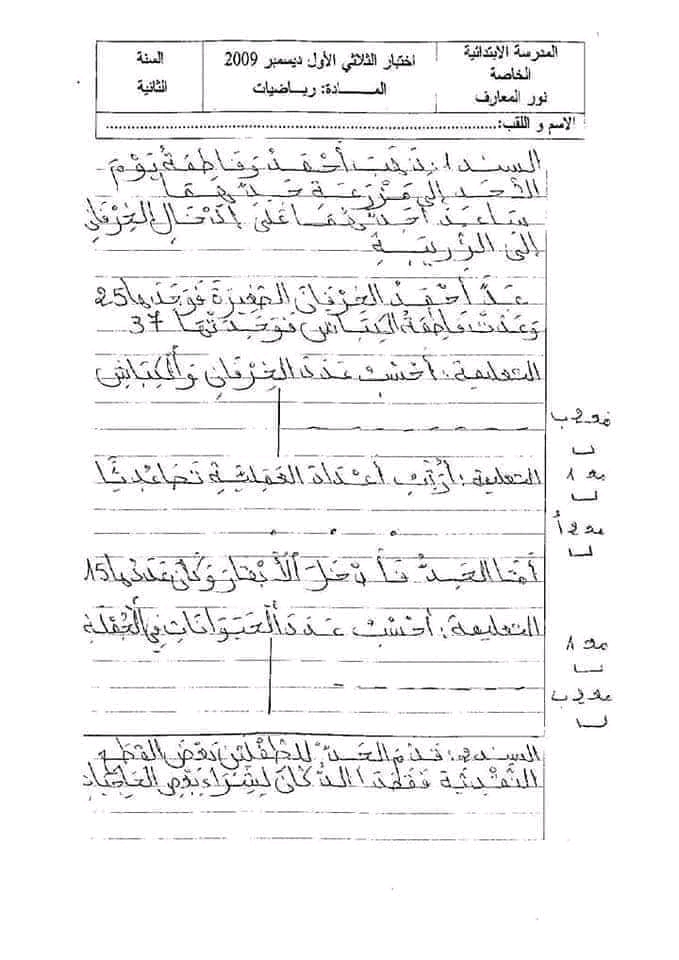 المدرسة الابتدائية
الخاصة
نور المعارف
اختبار الثلاثي الأول ديسمبر 2009
المــــادة: رياضيات
السنة
الثانية
الاسم و اللقب:
السند 1: ذَهَبَ أَحْمَدُ وَفَاطِمَةُ يَوْمَ
الأَحَدِ إِلَى مَزْرَعَةِ جَدِّهِمَا
سَاعَدَ أَحْمَدُ عَلَى إِدْخَالِ الخِرْفَانِ
إِلَى الزَّرِيبَةِ
عَدَّ أَحْمَدُ الخِرْفَانَ الصَّغِيرَةَ فَوَجَدَهَا 25
وَعَدَّتْ فَاطِمَةُ الكِبَاشَ فَوَجَدَتْهَا 37
التعليمة: أَحْسُبُ عَدَدَ الخِرْفَانِ وَالْكِبَاشِ
مع 2 ب
التعليمة: أُرَتِّبُ أَعْدَادَ العَمَلِيَّةِ تَصَاعُدِيًّا
مع 1
مع 2 أ
أَمَّا الجَدُّ فَأَدْخَلَ الأَبْقَارَ وَكَانَ عَدَدُهَا 15
التعليمة: أَحْسُبُ عَدَدَ الحَيَوَانَاتِ فِي الْجُمْلَةِ
مع 1
مع 2 ب
السند 2: قَدَّمَ الجَدُّ لِلطِّفْلَيْنِ بَعْضَ القِطَعِ
النَّقْدِيَّةِ فَقَصَدَا الدُّكَّانَ لِشِرَاءِ بَعْضِ الحَاجِيَاتِ